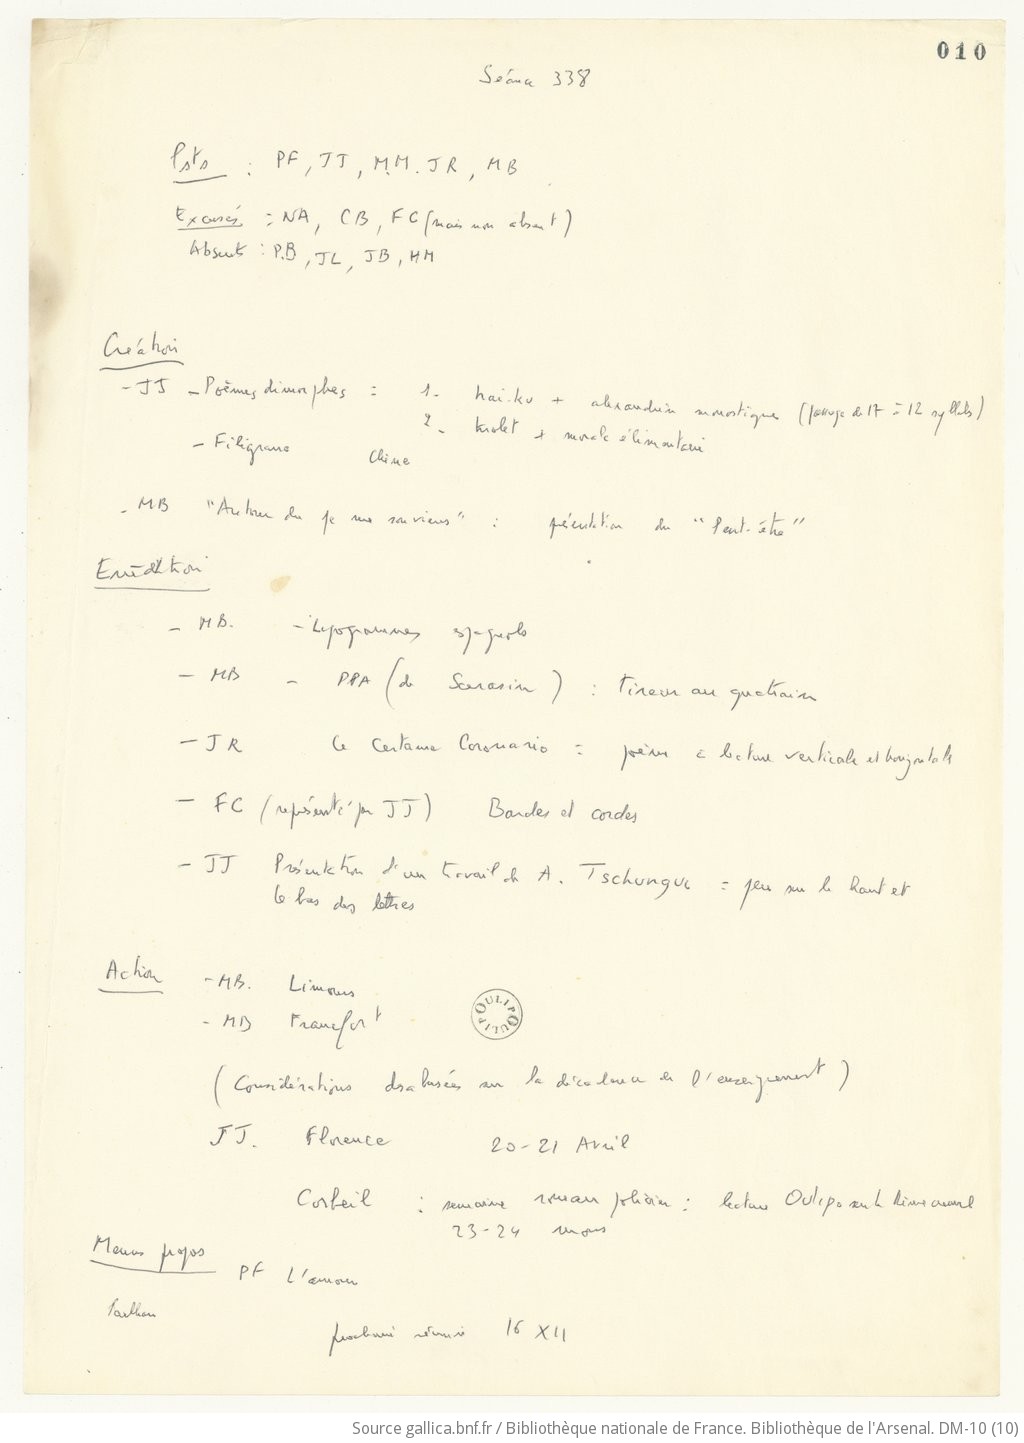 010
Séance 338
Psts : PF, JJ, M.M. JR, MB
Excusés : NA, CB, FC (mais non absent)
Absents : P.B, JL, JB, HM
Création
- JJ - Poèmes dimorphes : 1- haï-ku + alexandrin monostique (passage de 17 à 12 syllabes)
2- triolet + morale élémentaire
- Filigrane Chine
- MB "Autour du je me souviens" : présentation du "Peut-être"
Erudition
- MB. - Lipogrammes espagnols
- MB - PPA (de Sarrasin) : Tireur au quatrain
- JR Le Certame Coronario : poème à lecture verticale et horizontale
- FC (représenté par JJ) Bandes et cordes
- JJ Présentation d'un travail de A. Tschungui : jeu sur le haut et
le bas des lettres
Action - MB. Limours
- MB Francfort
OULIPO OULIPO
(Considérations désabusées sur la décadence de l'enseignement)
JJ. Florence 20-21 Avril
Corbeil : semaine roman policier : lecture Oulipo sur le
23-24 mars
Menus propos
PF L'amour
prochaine réunion 16 XII
Source gallica.bnf.fr / Bibliothèque nationale de France. Bibliothèque de l'Arsenal. DM-10 (10)